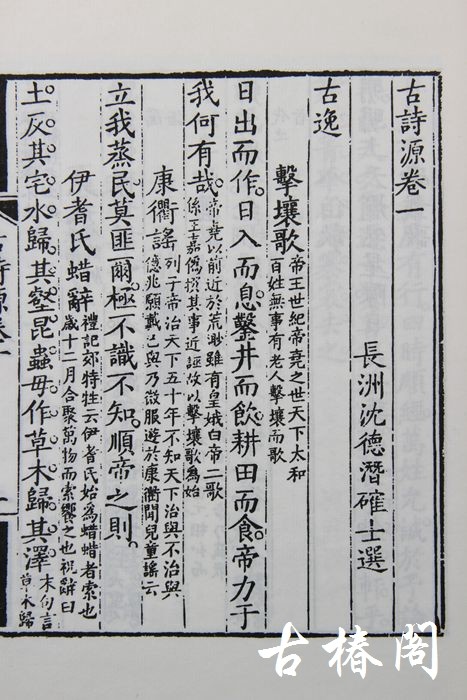 古詩源卷一
長洲沈德潛確士選
古逸
擊壤歌帝王世紀帝堯之世天下太和百姓無事有老人擊壤而歌
日出而作。日入而息。鑿井而飲。耕田而食。帝力于
我何有哉。帝堯以前近於荒渺雖有皇娥白帝二歌係王嘉偽撰其事近誣故以擊壤歌為始
康衢謠列子帝治天下五十年不知天下治與不治與億兆願戴己與乃微服遊於康衢聞兒童謠云
立我蒸民。莫匪爾極。不識不知。順帝之則。
伊耆氏蜡辭禮記郊特牲云伊耆氏始為蜡蜡者索也歲十二月合聚萬物而索饗之也祝辭曰
土反其宅。水歸其壑。昆蟲毋作。草木歸其澤。末句言草木歸
古椿阁